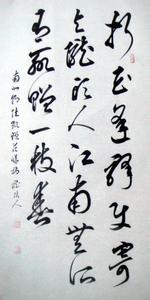 折花逢驛使寄
與隴頭人江南無所
有聊贈一枝春
南北朝陸凱贈范曄詩